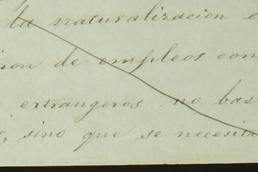 la naturalizacion e
ion de empleos con
extrangeros no bas
, sino que se necesita